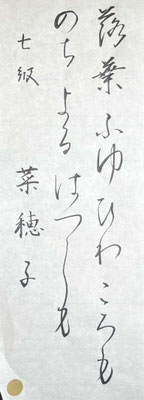 落葉ふゆひわころも
のちよるはつしも
七級 菜穂子